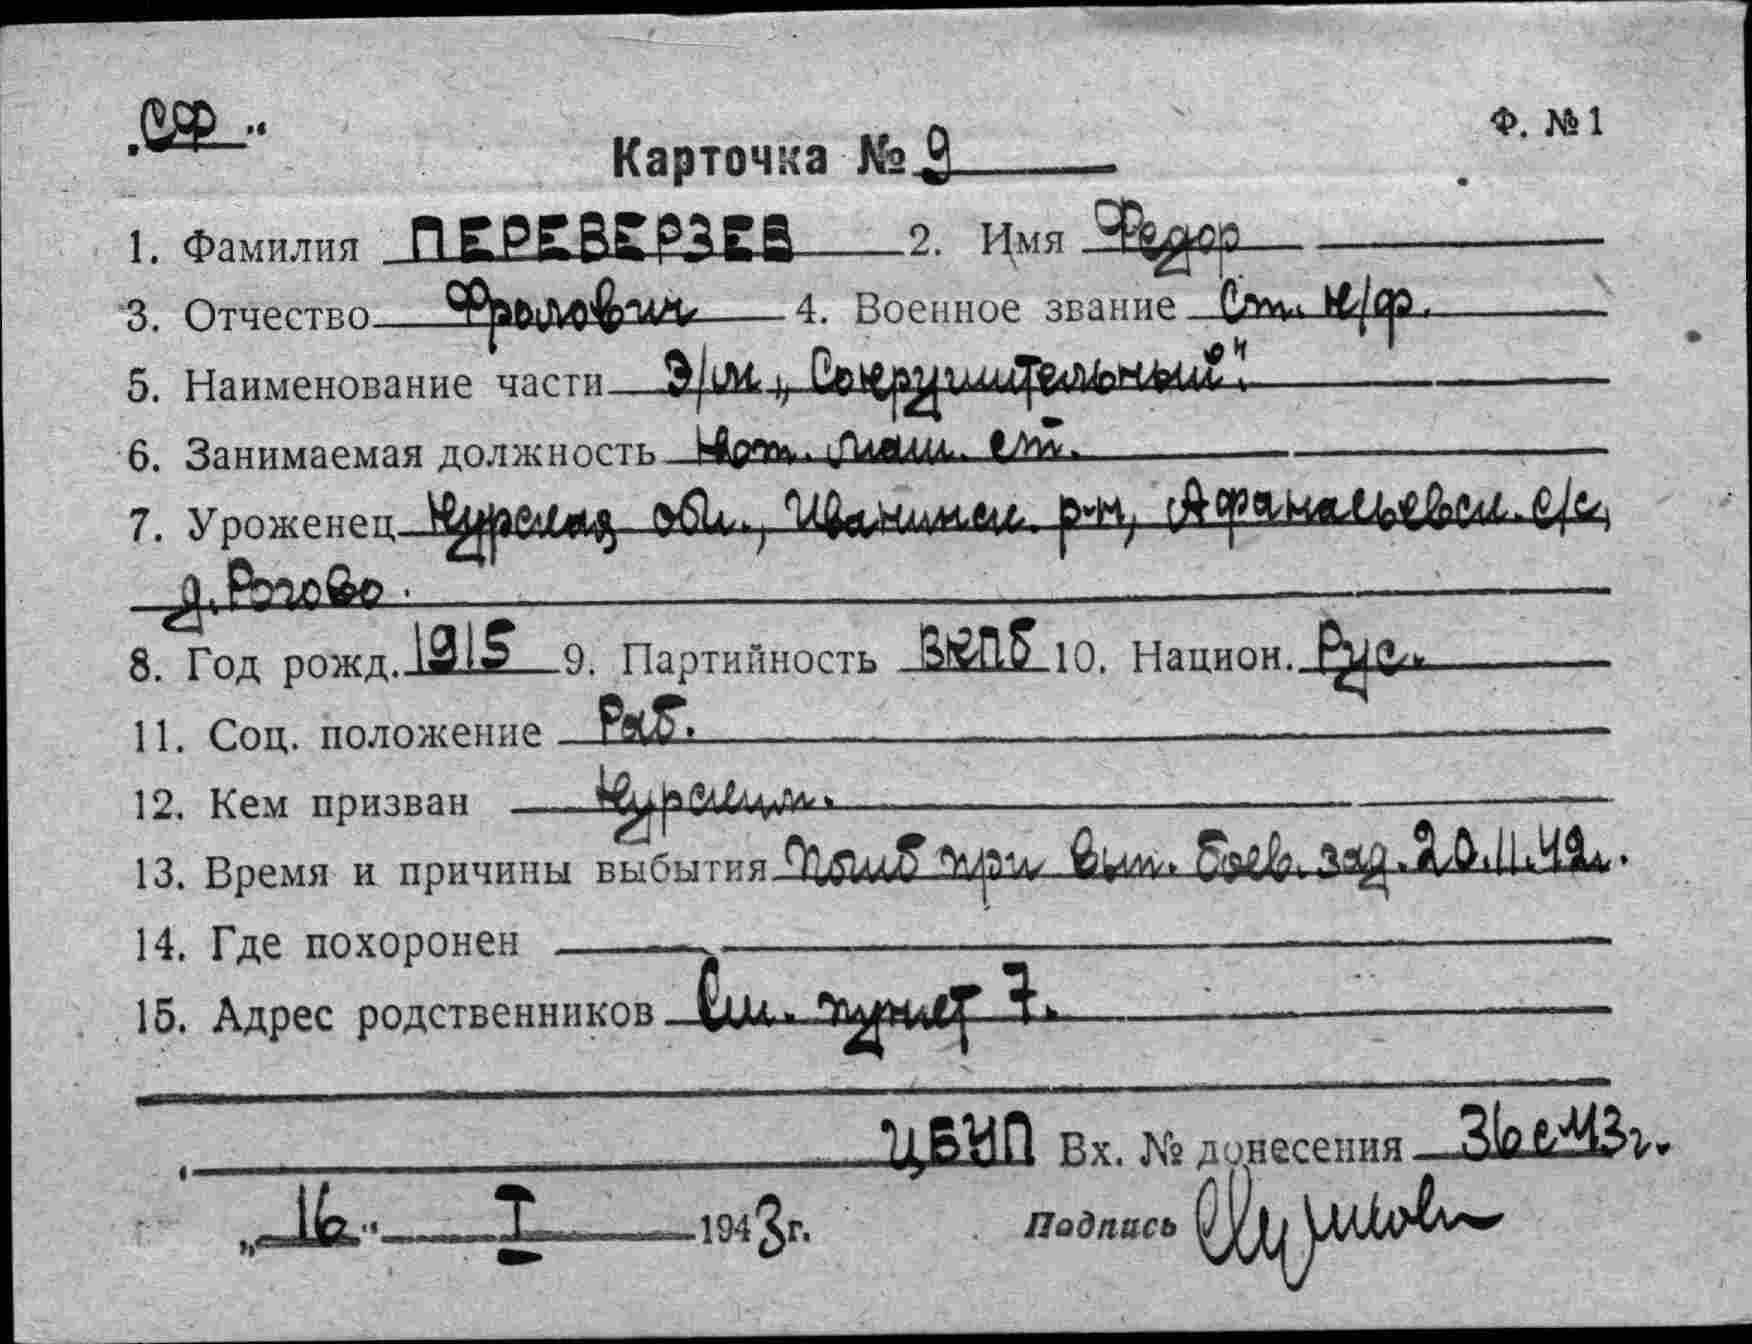 „СФ"
Ф. №1
Карточка № 9
1. Фамилия ПЕРЕВЕРЗЕВ 2. Имя Федор
3. Отчество Фролович 4. Военное звание Ст. к/ф.
5. Наименование части Э/м „Сокрушительный".
6. Занимаемая должность Кот. маш. ст.
7. Уроженец Курская обл., Иванинск. р-н, Афанасьевск. с/с,
д. Рогово.
8. Год рожд. 1915 9. Партийность ВКПб 10. Национ. Рус.
11. Соц. положение Раб.
12. Кем призван Курским.
13. Время и причины выбытия Погиб при вып. боев. зад. 20.11.42г.
14. Где похоронен
15. Адрес родственников См. пункт 7.
ЦБУП Вх. № донесения 36с 43г.
„16" I 1943г. Подпись